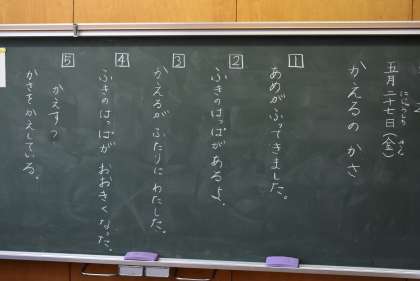 五月二十七日(金)
かえるの かさ
1
あめが ふってきました。
2
ふきのはっぱがあるよ。
3
かえるが ふたりに わたした。
4
ふきのはっぱが おおきくなった。
5
かえすっ
かさをかえしている。